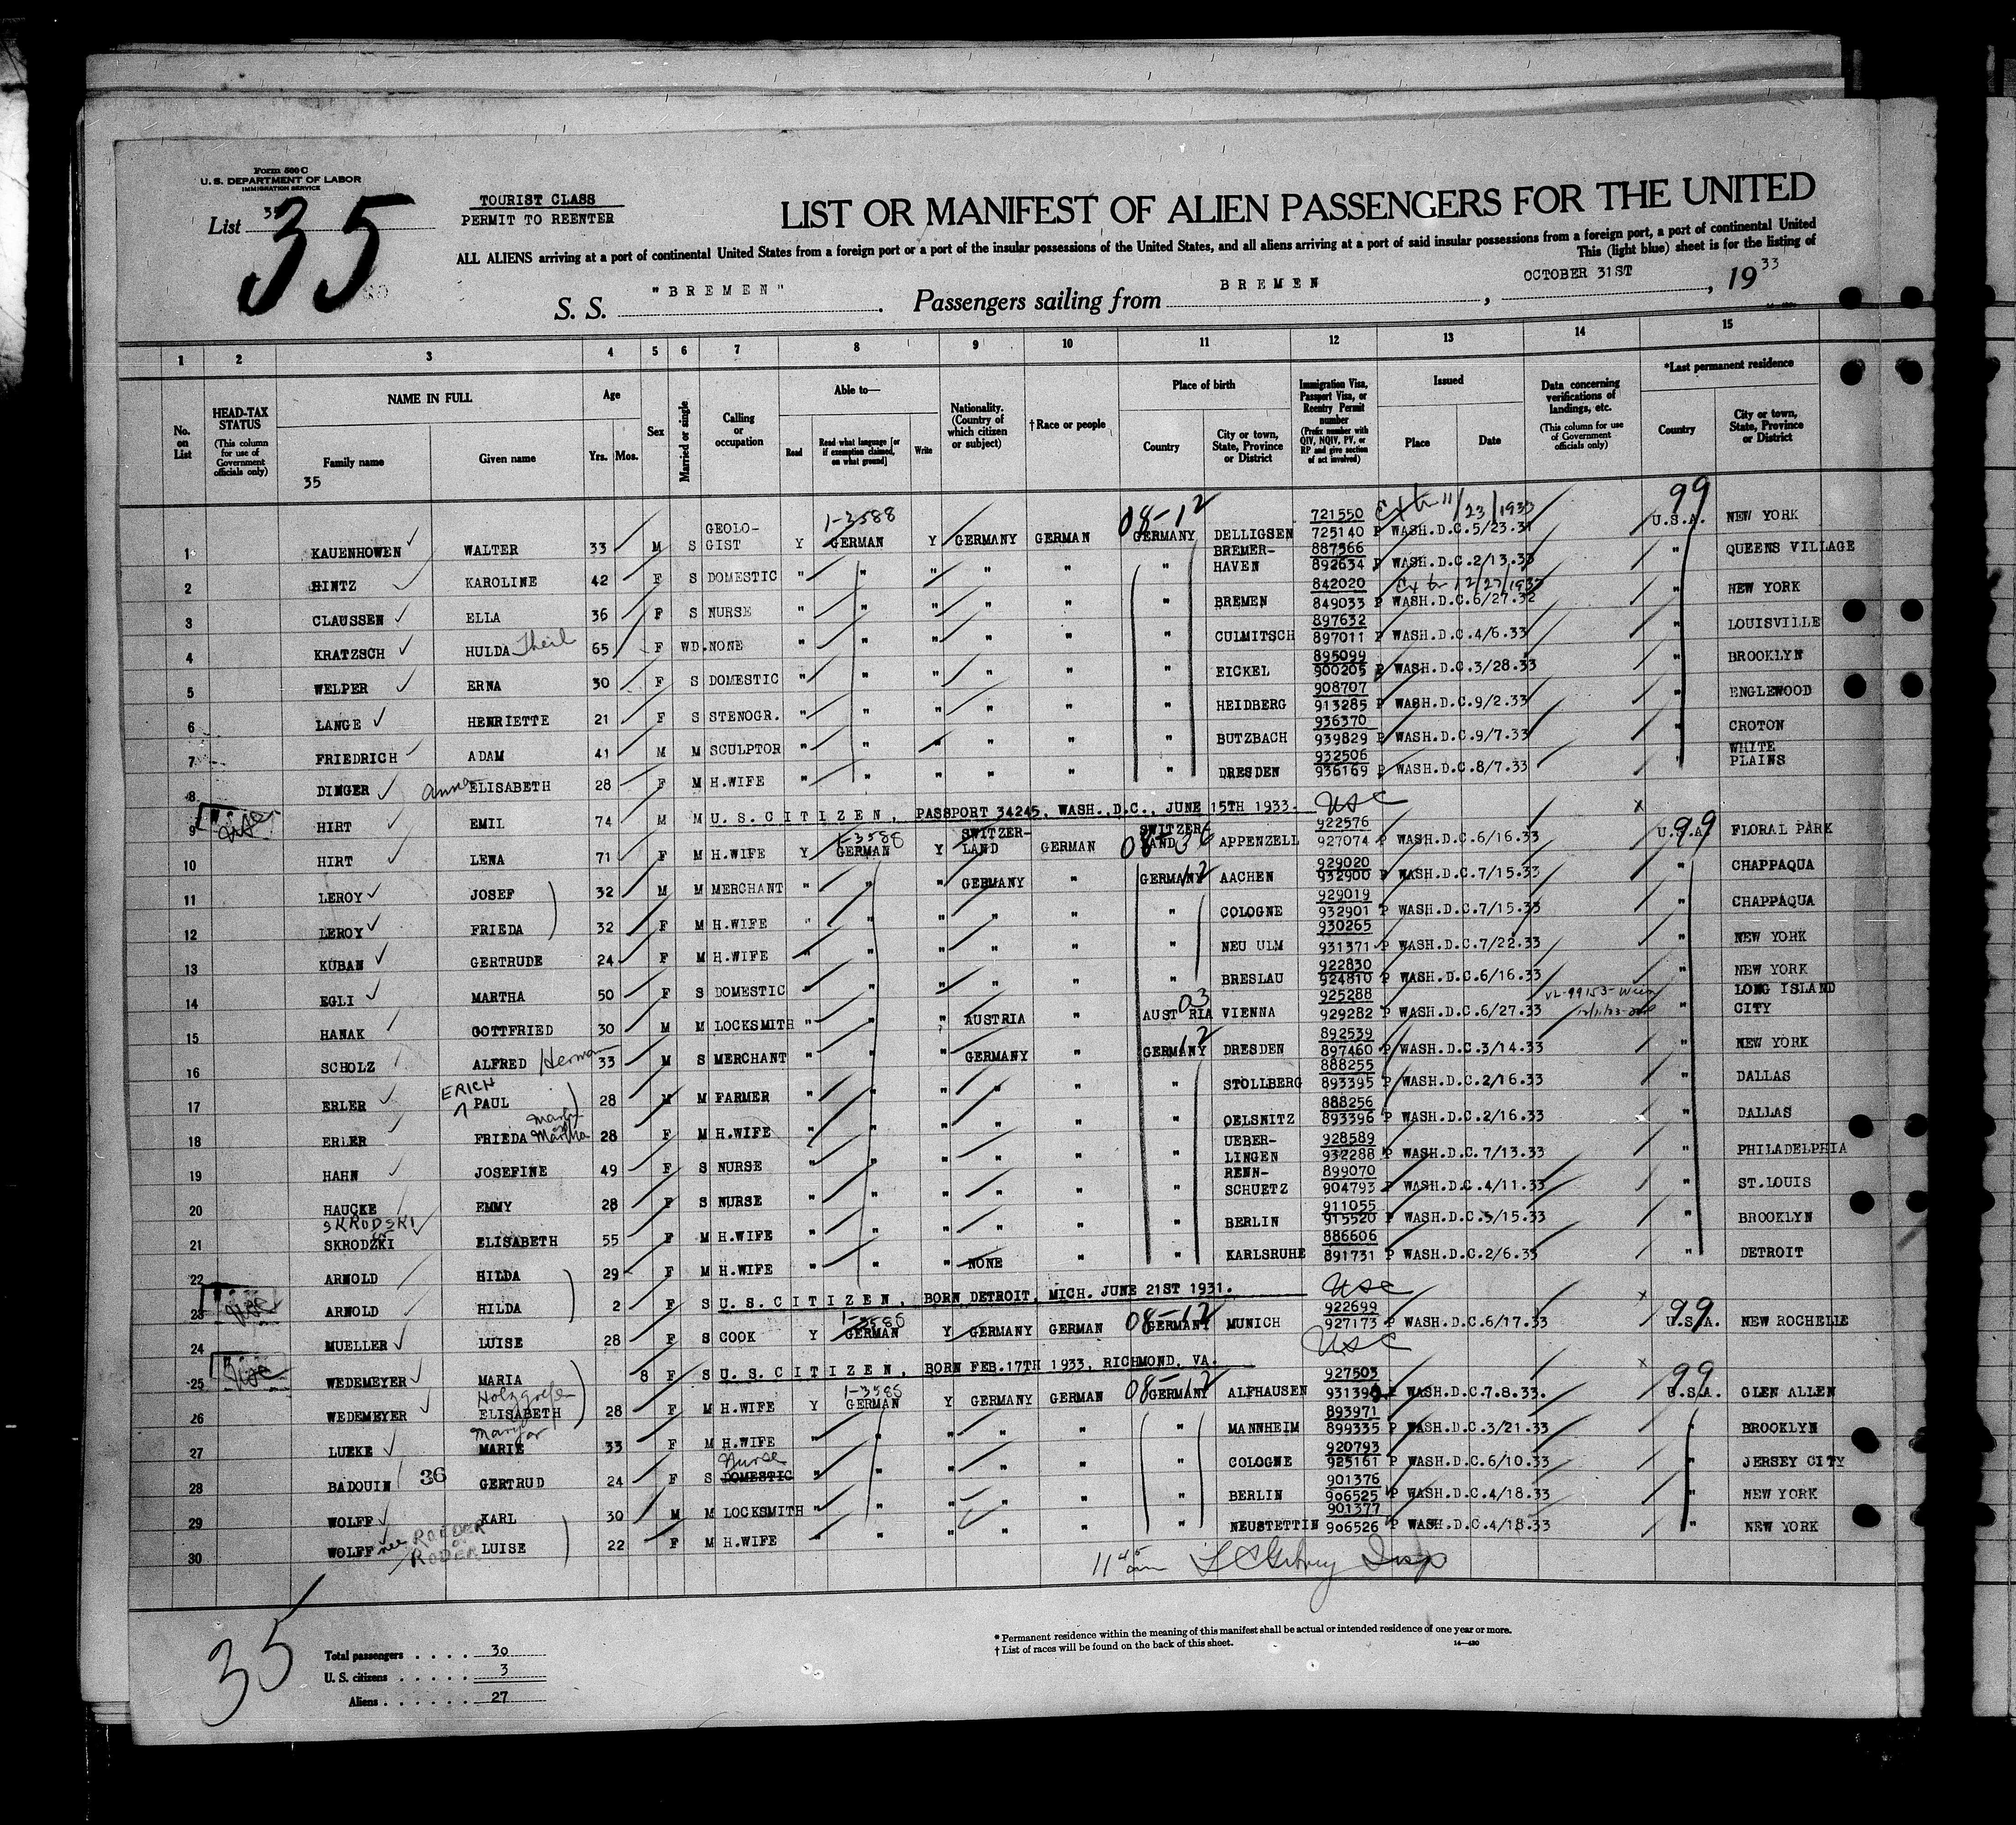 Form 500 C
U. S. DEPARTMENT OF LABOR
IMMIGRATION SERVICE
List 35
35
TOURIST CLASS
PERMIT TO REENTER
LIST OR MANIFEST OF ALIEN PASSENGERS FOR THE UNITED
ALL ALIENS arriving at a port of continental United States from a foreign port or a port of the insular possessions of the United States, and all aliens arriving at a port of said insular possessions from a foreign port, a port of continental United
This (light blue) sheet is for the listing of
S. S. "BREMEN". Passengers sailing from BREMEN, OCTOBER 31ST, 1933
1 2 3 4 5 6 7 8 9 10 11 12 13 14 15
No. on List
HEAD-TAX STATUS
(This column for use of Government officials only)
NAME IN FULL
Family name
Given name
Age
Yrs. Mos.
Sex
Married or single
Calling or occupation
Able to—
Read
Read what language [or if exemption claimed, on what ground]
Write
Nationality. (Country of which citizen or subject)
† Race or people
Place of birth
Country
City or town, State, Province or District
Immigration Visa, Passport Visa, or Reentry Permit number
(Prefix number with QIV, NQIV, PV, or RP and give section of act involved)
Issued
Place
Date
Data concerning verifications of landings, etc.
(This column for use of Government officials only)
*Last permanent residence
Country
City or town, State, Province or District
35
1 KAUENHOWEN WALTER 33 M S GEOLO-GIST Y 1-3588 GERMAN Y GERMANY GERMAN 08-12 GERMANY DELLIGSEN 721550 725140 P WASH.D.C.5/23.31 11/23/1933 99 U.S.A. NEW YORK
2 HINTZ KAROLINE 42 F S DOMESTIC " " " " " " BREMER-HAVEN 887566 892634 P WASH.D.C.2/13.33 " QUEENS VILLAGE
3 CLAUSSEN ELLA 36 F S NURSE " " " " " " BREMEN 842020 849033 P WASH.D.C.6/27.32 " NEW YORK
4 KRATZSCH HULDA Theil 65 F WD. NONE " " " " " " CULMITSCH 897632 897011 P WASH.D.C.4/6.33 " LOUISVILLE
5 WELPER ERNA 30 F S DOMESTIC " " " " " " EICKEL 895099 900205 P WASH.D.C.3/28.33 " BROOKLYN
6 LANGE HENRIETTE 21 F S STENOGR. " " " " " " HEIDBERG 908707 913285 P WASH.D.C.9/2.33 " ENGLEWOOD
7 FRIEDRICH ADAM 41 M M SCULPTOR " " " " " " BUTZBACH 936370 939829 P WASH.D.C.9/7.33 " CROTON
8 DINGER Anna ELISABETH 28 F M H.WIFE " " " " " " DRESDEN 932506 936169 P WASH.D.C.8/7.33 " WHITE PLAINS
9 HIRT EMIL 74 M M U.S.CITIZEN, PASSPORT 34245, WASH.,D.C., JUNE 15TH 1933. USC x
10 HIRT LENA 71 F M H.WIFE Y 1-3588 GERMAN Y SWITZER-LAND GERMAN 08-36 SWITZER-LAND APPENZELL 922576 927074 P WASH.D.C.6/16.33 99 U.S.A. FLORAL PARK
11 LEROY JOSEF 32 M M MERCHANT " " " GERMANY " GERMANY 12 AACHEN 929020 932900 P WASH.D.C.7/15.33 " CHAPPAQUA
12 LEROY FRIEDA 32 F M H.WIFE " " " " " " COLOGNE 929019 932901 P WASH.D.C.7/15.33 " CHAPPAQUA
13 KUBAN GERTRUDE 24 F M H.WIFE " " " " " " NEU ULM 930265 931371 P WASH.D.C.7/22.33 " NEW YORK
14 EGLI MARTHA 50 F S DOMESTIC " " " " " " BRESLAU 922830 924810 P WASH.D.C.6/16.33 " NEW YORK
15 HANAK GOTTFRIED 30 M M LOCKSMITH " " " AUSTRIA " AUSTRIA 03 VIENNA 925288 929282 P WASH.D.C.6/27.33 " LONG ISLAND CITY
16 SCHOLZ ALFRED Herman 33 M S MERCHANT " " " GERMANY " GERMANY 12 DRESDEN 892539 897460 P WASH.D.C.3/14.33 " NEW YORK
17 ERLER ERICH PAUL 28 M M FARMER " " " " " " STOLLBERG 888255 893395 P WASH.D.C.2/16.33 " DALLAS
18 ERLER FRIEDA Martha 28 F M H.WIFE " " " " " " OELSNITZ 888256 893396 P WASH.D.C.2/16.33 " DALLAS
19 HAHN JOSEFINE 49 F S NURSE " " " " " " UEBER-LINGEN 928589 932288 P WASH.D.C.7/13.33 " PHILADELPHIA
20 HAUCKE EMMY 28 F S NURSE " " " " " " RENN-SCHUETZ 899070 904793 P WASH.D.C.4/11.33 " ST.LOUIS
21 SKRODSKI SKRODZKI ELISABETH 55 F M H.WIFE " " " " " " BERLIN 911055 915520 P WASH.D.C.5/15.33 " BROOKLYN
22 ARNOLD HILDA 29 F M H.WIFE " " " NONE " " KARLSRUHE 886606 891731 P WASH.D.C.2/6.33 " DETROIT
23 ARNOLD HILDA 2 F S U.S.CITIZEN, BORN DETROIT, MICH. JUNE 21ST 1931. USC x
24 MUELLER LUISE 28 F S COOK Y 1-3586 GERMAN Y GERMANY GERMAN 08-12 GERMANY MUNICH 922699 927173 P WASH.D.C.6/17.33 99 U.S.A. NEW ROCHELLE
25 WEDEMEYER MARIA 8 F S U.S.CITIZEN, BORN FEB.17TH 1933, RICHMOND, VA. USC x
26 WEDEMEYER ELISABETH 28 F M H.WIFE Y 1-3586 GERMAN Y GERMANY GERMAN 08-12 GERMANY ALFHAUSEN 927503 931390 P WASH.D.C.7.8.33. 99 U.S.A. GLEN ALLEN
27 LUEKE MARIE 33 F M H.WIFE " " " " " " MANNHEIM 893971 899335 P WASH.D.C.3/21.33 " BROOKLYN
28 BADOUIN 36 GERTRUD 24 F S Nurse DOMESTIC " " " " " " COLOGNE 920793 925161 P WASH.D.C.6/10.33 " JERSEY CITY
29 WOLFF KARL 30 M M LOCKSMITH " " " " " " BERLIN 901376 906525 P WASH.D.C.4/18.33 " NEW YORK
30 WOLFF nee ROEDER or RODER LUISE 22 F M H.WIFE " " " " " " NEUSTETTIN 901377 906526 P WASH.D.C.4/18.33 " NEW YORK
11 45 am Insp
35
Total passengers 30
U. S. citizens 3
Aliens 27
* Permanent residence within the meaning of this manifest shall be actual or intended residence of one year or more.
† List of races will be found on the back of this sheet.
14—430